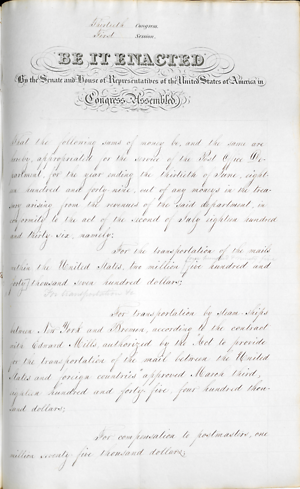 Thirtieth Congress
First Session
BE IT ENACTED
By the Senate and House of Representatives of the United States of America in
Congress Assembled,
That the following sums of money be, and the same are
hereby, appropriated for the service of the Post Office De-
partment, for the year ending the thirtieth of June, eight-
een hundred and forty nine, out of any moneys in the trea-
sury arising from the revenues of the said department, in
conformity to the act of the second of July eighteen hundred
and thirty six, namely:
For the transportation of the mails
within the United States, two million five hundred and
forty thousand seven hundred dollars;
For transportation
For transportation, by steam ships
between New York and Bremen, according to the contract
with Edward Mills, authorized by the Act to provide
for the transportation of the mail between the United
States and foreign countries approved March third,
eighteen hundred and forty five, four hundred thou-
sand dollars;
For compensation to postmasters, one
million seventy five thousand dollars;